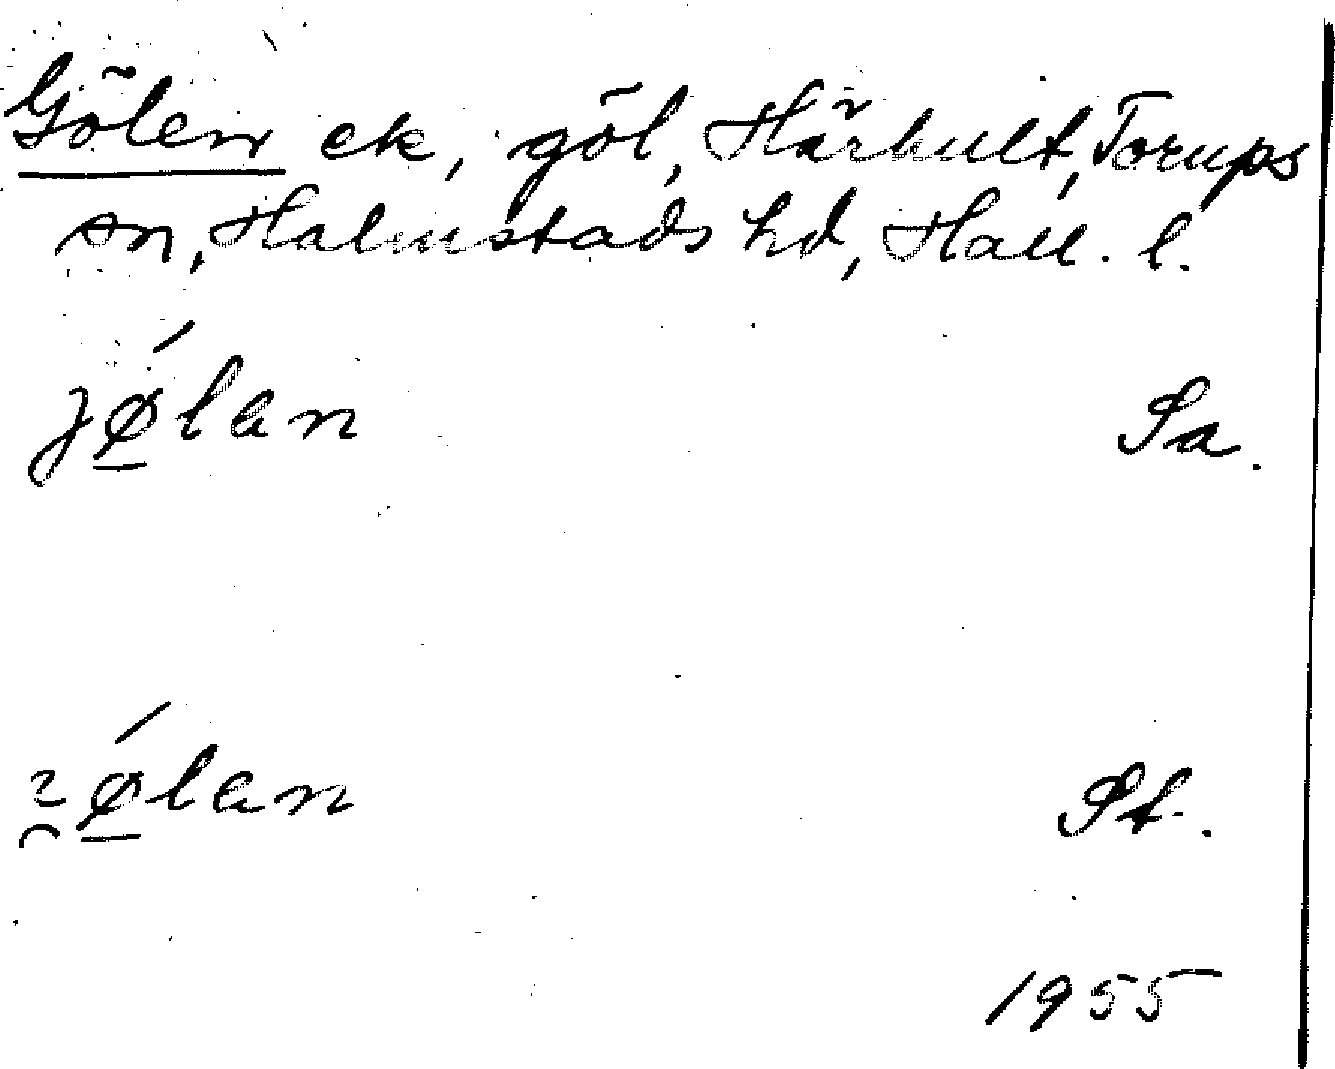 Gölen ek, göl, Härhult, Torups
sn, Halmstads hd, Hall. l.
jǿ̲lan Sa.
ǿ̲lan St.
1955